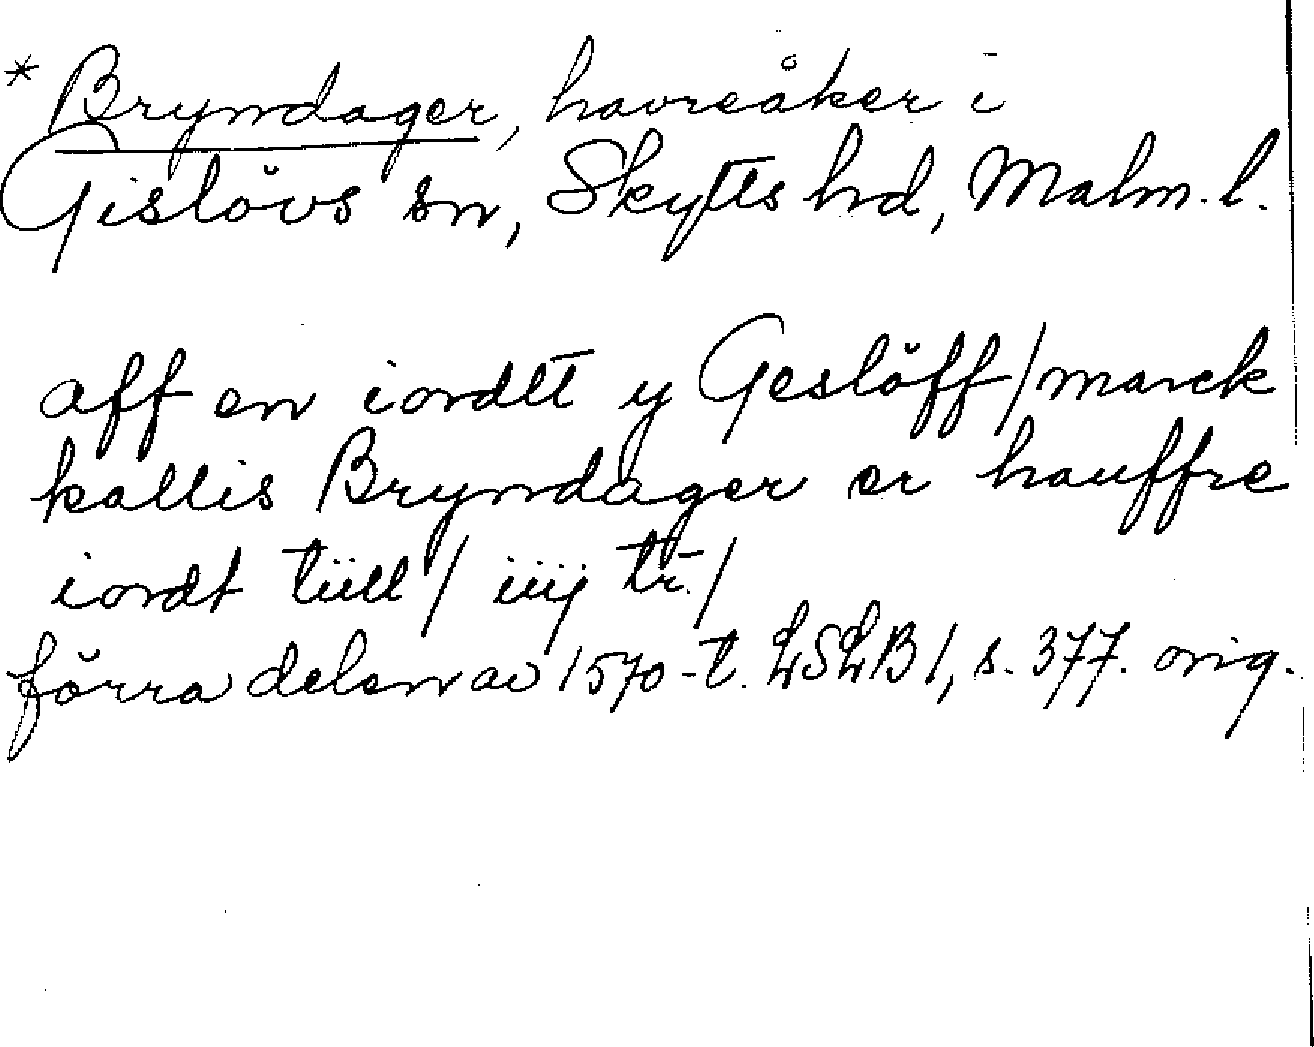 * Bryndager, havreåker i
Gislövs sn, Skytts hd, Malm. l.
aff en iordtt y Geslöff/marck
kallis Bryndager er hauffre
iordt tiill / iiij tr̄./
förra delen av 1570-t. LSLB 1, s. 377. orig.